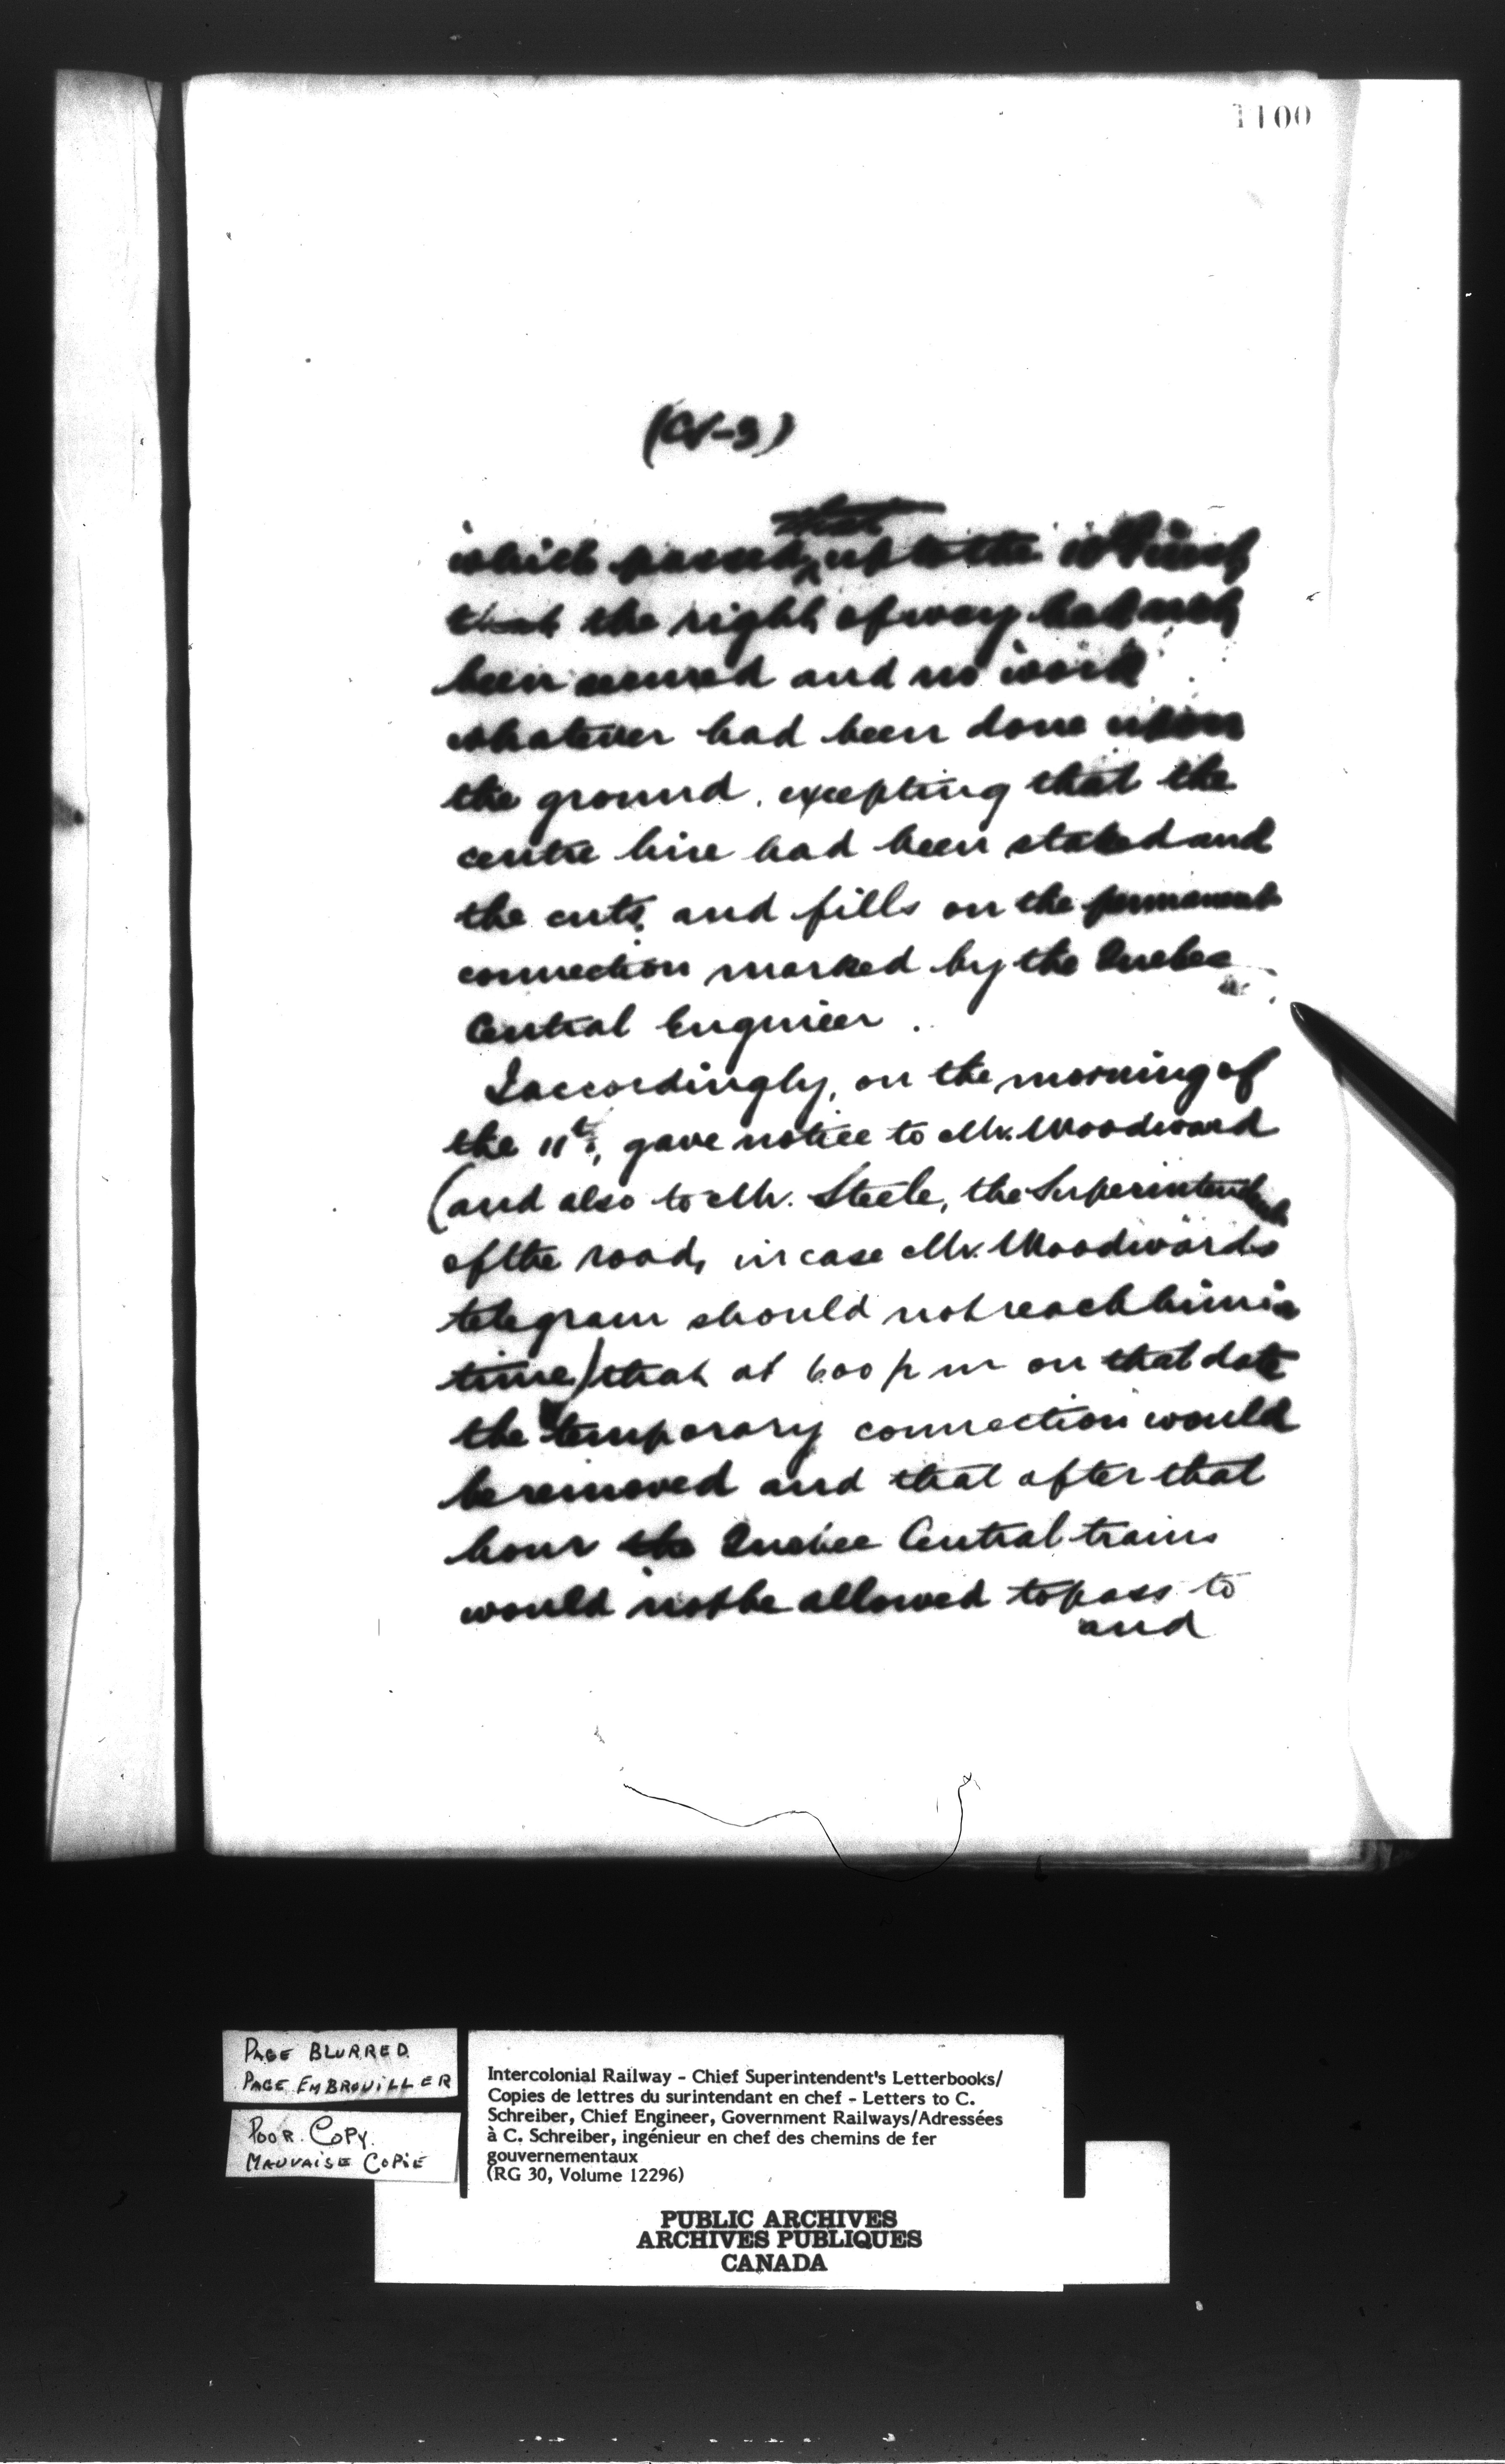 1100
(CS-3)
which passed that up to the
that the right of way had not
been secured and no work
whatever had been done upon
the ground, excepting that the
centre line had been staked and
the cuts, and fills on the permanent
connection marked by the Quebec
Central Engineer.
I accordingly, on the morning of
the 11th, gave notice to Mr. Woodward
(and also to Mr. Steele, the Superintendent
of the road, in case Mr. Woodwards
telegram should not reach him in
time) that at 6.00 p m on that date
the temporary connection would
be removed and that after that
hour the Quebec Central trains
would not be allowed to pass to
and
PAGE BLURRED
PAGE EMBROUILLER
POOR COPY.
MAUVAISE COPIE
Intercolonial Railway - Chief Superintendent's Letterbooks/
Copies de lettres du surintendant en chef - Letters to C.
Schreiber, Chief Engineer, Government Railways/Adressées
à C. Schreiber, ingénieur en chef des chemins de fer
gouvernementaux
(RG 30, Volume 12296)
PUBLIC ARCHIVES
ARCHIVES PUBLIQUES
CANADA